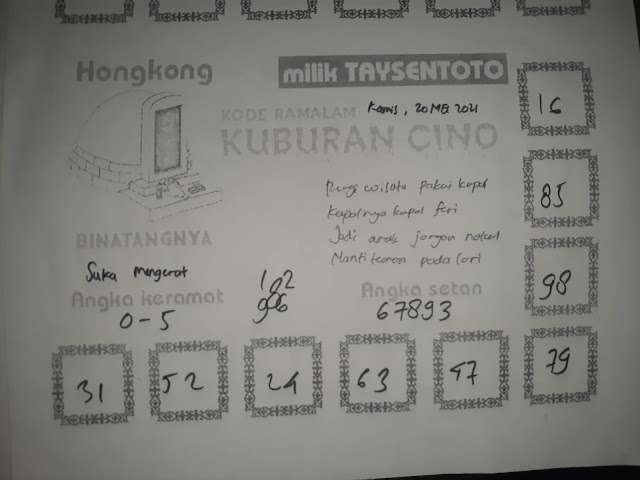 Hongkong
milik TAYSENTOTO
KODE RAMALAM Kamis, 20 MEI 2021
KUBURAN CINO
16
Pergi wisata pakai kapal
Kapalnya kapal feri
Jadi anak jangan nakal
Nanti teman pada lari
85
BINATANGNYA
Suka mengerat
Angka keramat
0-5
102
986
Angka setan
67893
98
31
52
24
63
47
79